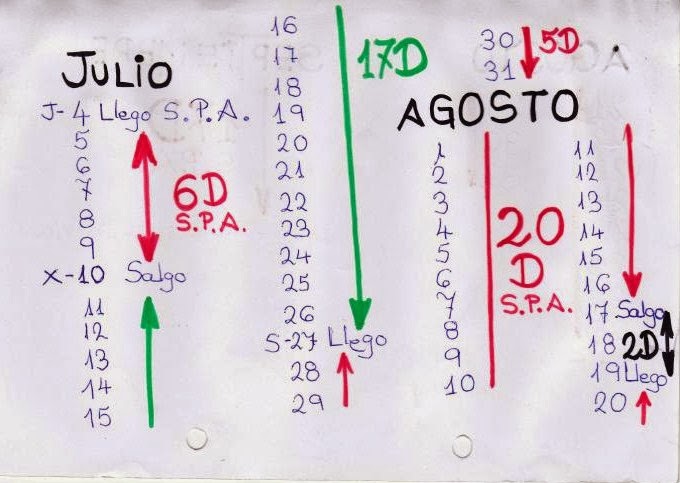 JULIO
J-4 Llego S.P.A.
5
6
7
8
9
6D
S.P.A.
X-10 Salgo
11
12
13
14
15
16
17
18
19
20
21
22
23
24
25
26
S-27 Llego
28
29
17D
30
31
5D
AGOSTO
1
2
3
4
5
6
7
8
9
10
20
D
S.P.A.
11
12
13
14
15
16
17 Salgo
18 2D
19 Llego
20